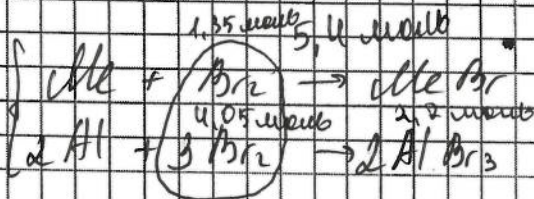 1,35 моль 5,4 моль
Me + Br₂ → MeBr
4,05 моль 2,7 моль
2Al + 3Br₂ → 2AlBr₃